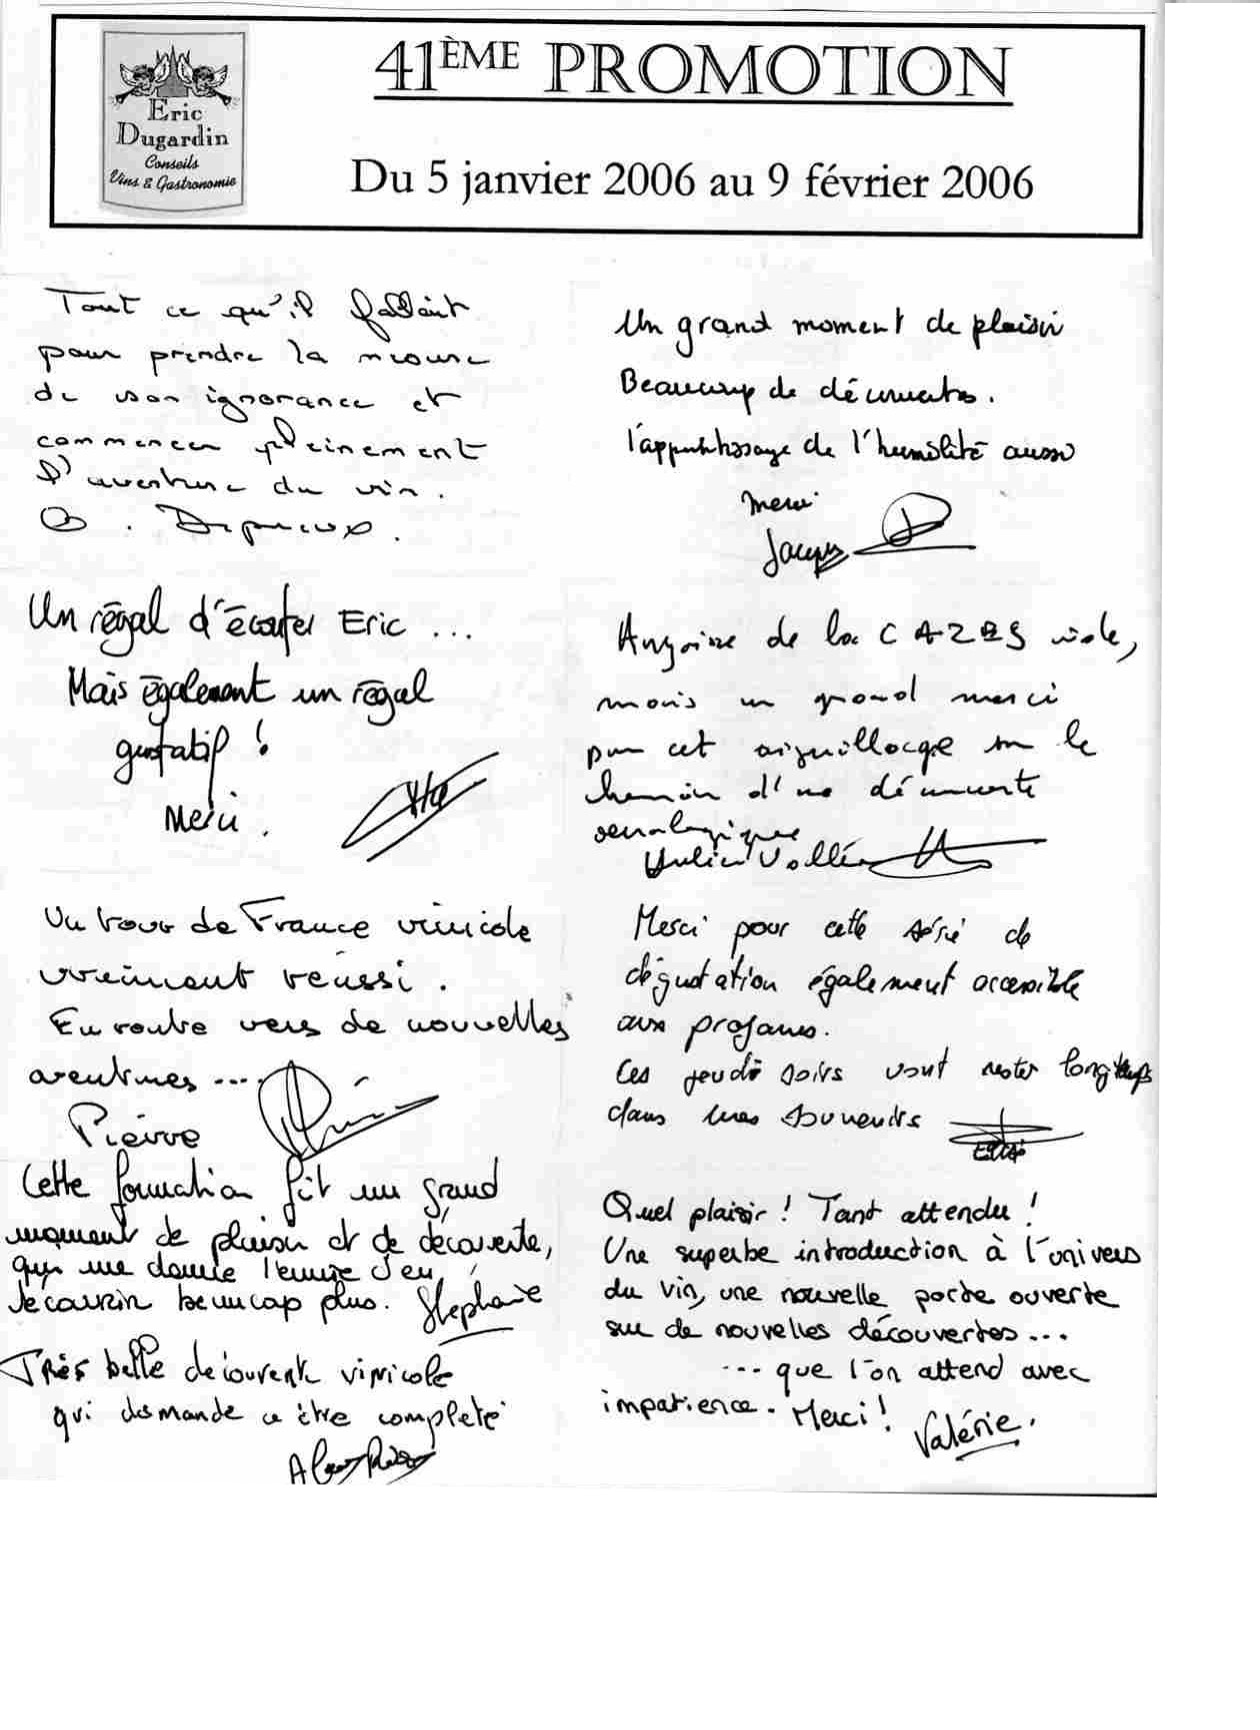 Eric
Dugardin
Conseils
Vins & Gastronomie
41ÈME PROMOTION
Du 5 janvier 2006 au 9 février 2006
Tout ce qu'il fallait
pour prendre la mesure
de son ignorance et
commencer pleinement
l'aventure du vin.
Un grand moment de plaisir
Beaucoup de découvertes.
l'apprentissage de l'humilité aussi
Merci
Jacques
Un régal d'écouter Eric ...
Mais également un régal
gustatif !
Merci.
de la
mais un grand merci
pour cet aiguillage sur le
chemin d'une découverte
oenologique
Julien
Un tour de France vinicole
vraiment réussi.
En route vers de nouvelles
aventures ....
Pierre
Merci pour cette série de
dégustation également accessible
aux profanes.
Ces jeudi soirs vont rester longtemps
dans mes souvenirs
Cette formation fût un grand
moment de plaisir et de découverte,
qui me donne l'envie d'en
découvrir beaucoup plus. Stephanie
Quel plaisir ! Tant attendu !
Une superbe introduction à l'univers
du vin, une nouvelle porte ouverte
sur de nouvelles découvertes...
... que l'on attend avec
impatience. Merci !
Valérie.
Très belle découverte vinicole
qui demande a être completé